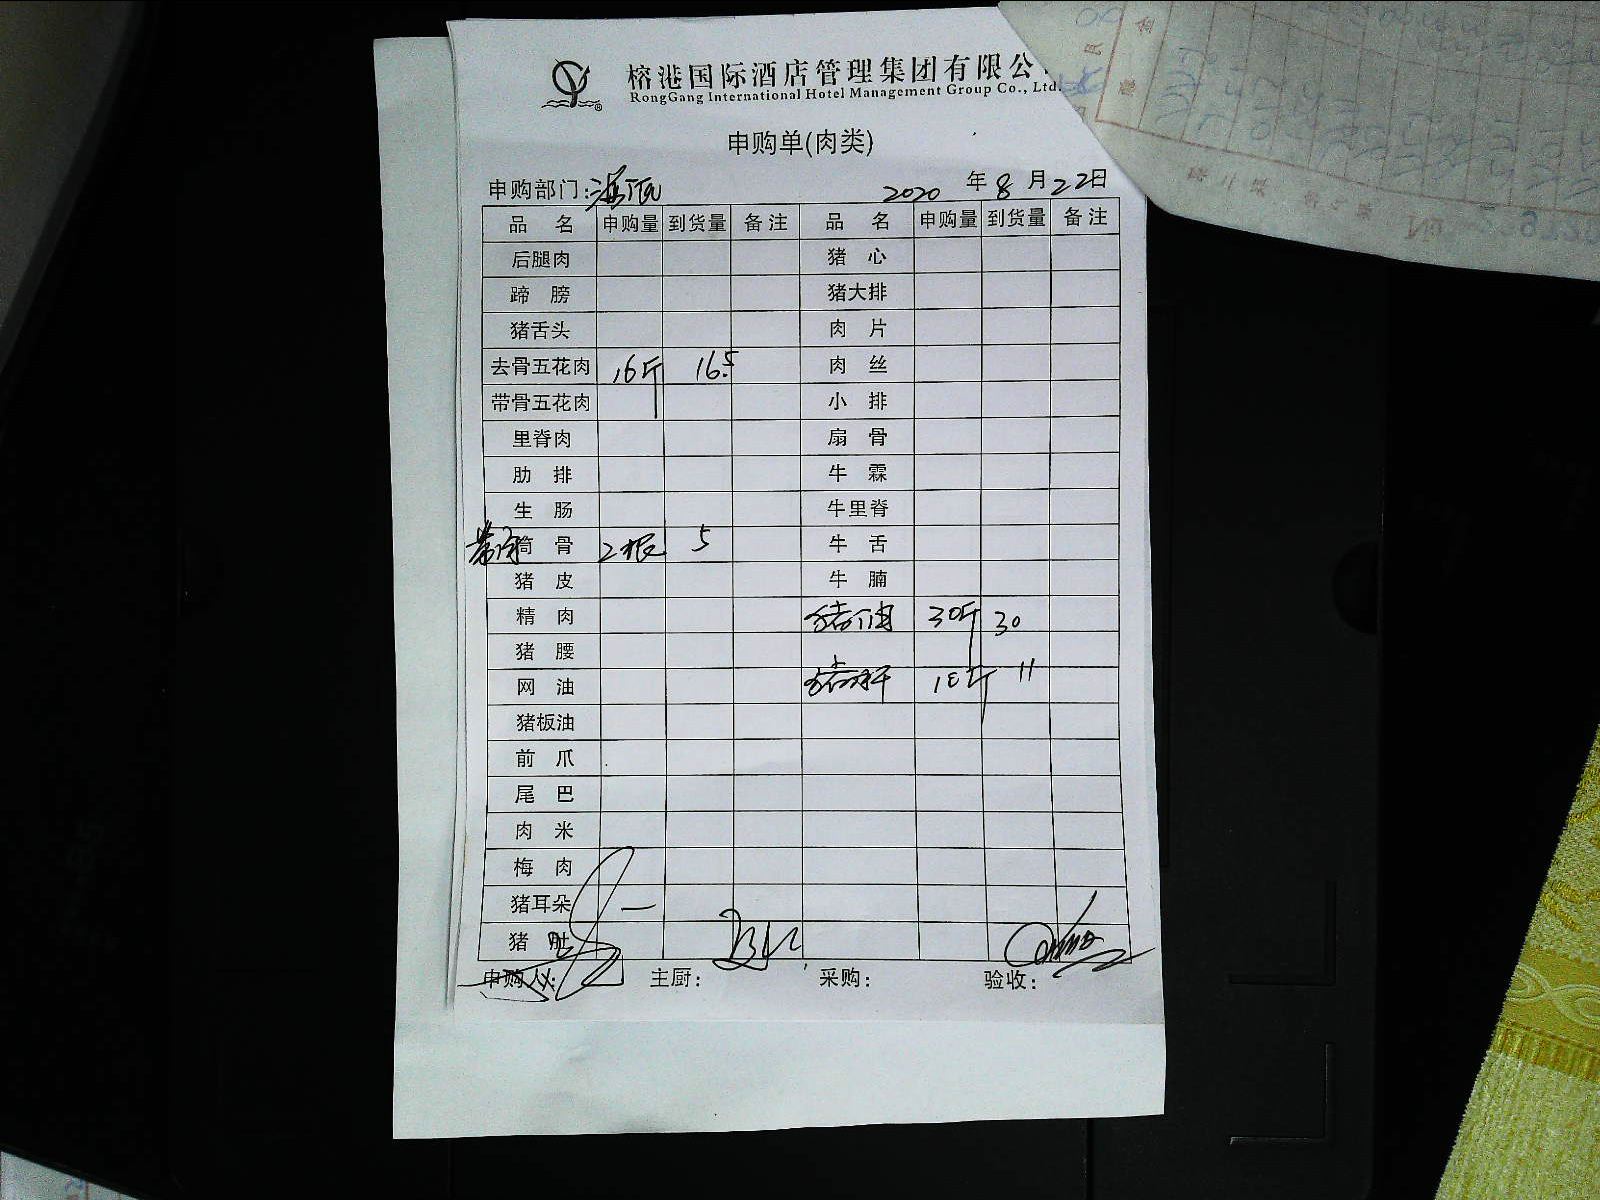 榕港国际酒店管理集团有限公
RongGang International Hotel Management Group Co., Ltd.
申购单(肉类)
申购部门: 2020 年 8 月 22 日
品 名 申购量 到货量 备注 品 名 申购量 到货量 备注
后腿肉 猪 心
蹄 膀 猪大排
猪舌头 肉 片
去骨五花肉 16斤 16.5 肉 丝
带骨五花肉 小 排
里脊肉 扇 骨
肋 排 牛 霖
生 肠 牛里脊
带肉筒 骨 2根 5 牛 舌
猪 皮 牛 腩
精 肉 30斤 30
猪 腰
网 油 猪肝 10斤 11
猪板油
前 爪
尾 巴
肉 米
梅 肉
猪耳朵
猪 肚
申购人: 主厨: 采购: 验收: